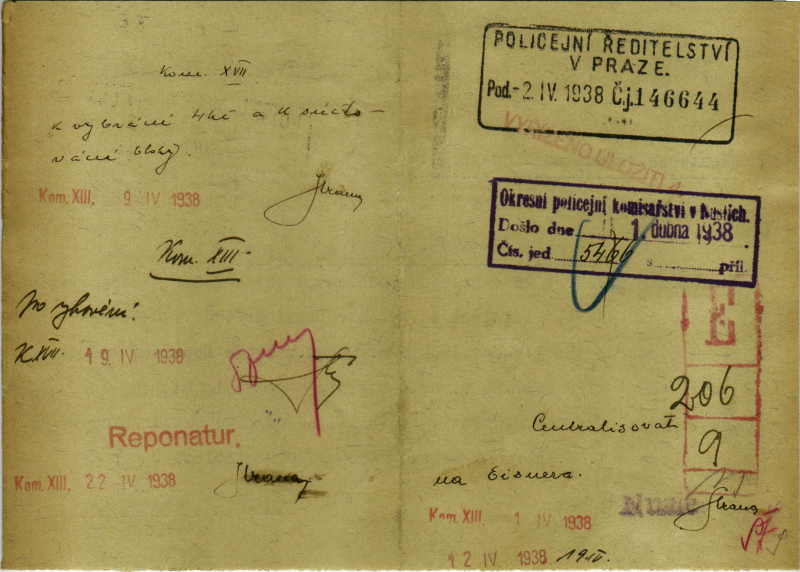 Kom. XVII.
k vybrání 4 Kč a k súčto-
vání bloky.
Kom. XIII, 9 IV 1938
Kom. XIII.
Po vyhovění.
K. XVII. 19 IV 1938
Reponatur.
Kom. XIII, 22 IV 1938
POLICEJNÍ ŘEDITELSTVÍ
V PRAZE.
Pod. -2. IV. 1938 Č.j. 146644
VYŘÍZENO ULOŽITI
Okresní policejní komisařství v Nuslích.
Došlo dne 1. dubna 1938
Čís. jed. 5466 příl.
E
206
9
Centralisovat
na Eisnera.
Nusle
Kom. XIII, 1 IV 1938
12 IV 1938